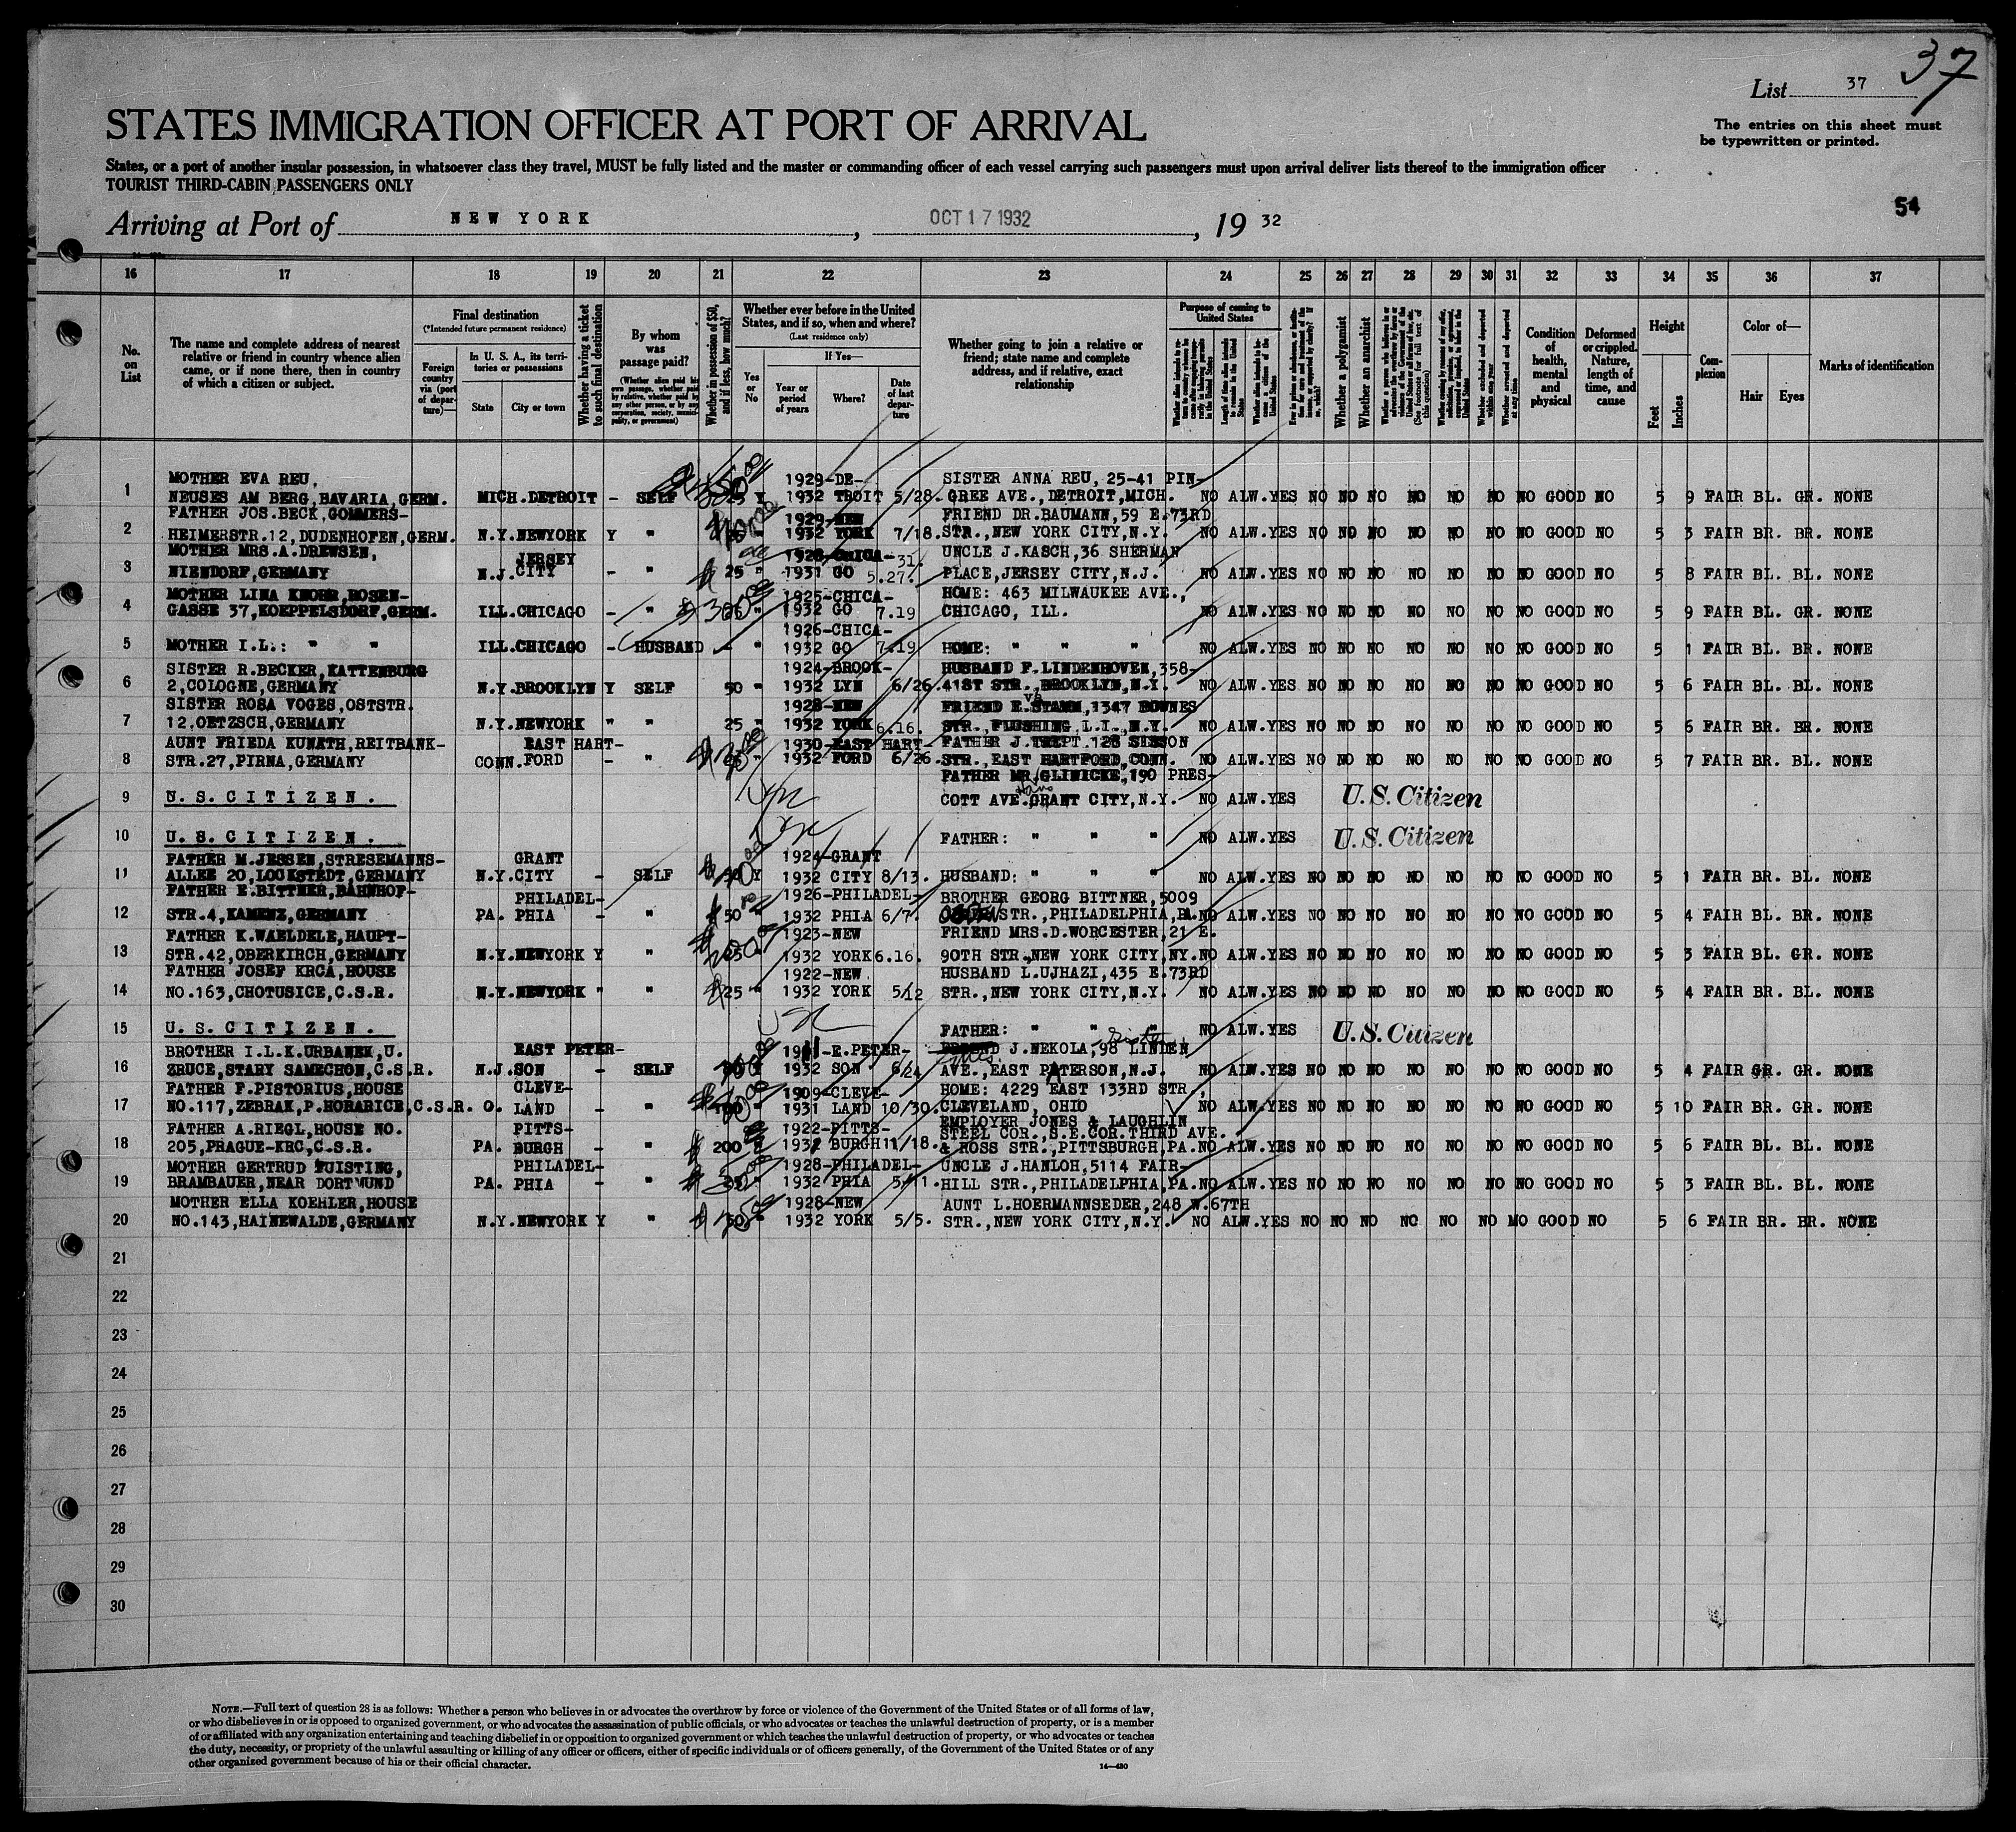 37
List 37
STATES IMMIGRATION OFFICER AT PORT OF ARRIVAL
The entries on this sheet must
be typewritten or printed.
States, or a port of another insular possession, in whatsoever class they travel, MUST be fully listed and the master or commanding officer of each vessel carrying such passengers must upon arrival deliver lists thereof to the immigration officer
TOURIST THIRD-CABIN PASSENGERS ONLY
54
Arriving at Port of NEW YORK, OCT 17 1932, 19 32
16 17 18 19 20 21 22 23 24 25 26 27 28 29 30 31 32 33 34 35 36 37
No. on List
The name and complete address of nearest
relative or friend in country whence alien
came, or if none there, then in country
of which a citizen or subject.
Final destination
(*Intended future permanent residence)
Foreign country via (port of departure)—
In U. S. A., its territories or possessions
State
City or town
Whether having a ticket to such final destination
By whom was passage paid?
(Whether alien paid his own passage, whether paid by relative, whether paid by any other person, or by any corporation, society, municipality, or government)
Whether in possession of $50, and if less, how much?
Whether ever before in the United
States, and if so, when and where?
(Last residence only)
Yes or No
If Yes—
Year or period of years
Where?
Date of last departure
Whether going to join a relative or
friend; state name and complete
address, and if relative, exact
relationship
Purpose of coming to
United States
Length of time alien intends to remain in the United States
Whether alien intends to become a citizen of the United States
Whether a polygamist
Whether an anarchist
(See footnote for full text of this question)
Whether excluded and deported within one year
Whether arrested and deported at any time
Condition of health, mental and physical
Deformed or crippled. Nature, length of time, and cause
Height
Feet
Inches
Complexion
Color of—
Hair
Eyes
Marks of identification
MOTHER EVA REU, 1929-DE- SISTER ANNA REU, 25-41 PIN-
1 NEUSES AM BERG, BAVARIA, GERM. MICH. DETROIT - SELF 25 Y 1932 TROIT 5/28. GREE AVE., DETROIT, MICH. NO ALW. YES NO NO NO NO NO NO NO GOOD NO 5 9 FAIR BL. GR. NONE
FATHER JOS. BECK, GOMMERS- 1929-NEW FRIEND DR. BAUMANN, 59 E. 73RD
2 HEIMERSTR. 12, DUDENHOFEN, GERM. N.Y. NEWYORK Y " " 1932 YORK 7/18. STR., NEW YORK CITY, N.Y. NO ALW. YES NO NO NO NO NO NO NO GOOD NO 5 3 FAIR BR. BR. NONE
MOTHER MRS. A. DREWSEN, JERSEY 1928-CHICA- 31. UNCLE J. KASCH, 36 SHERMAN
3 NIENDORF, GERMANY N.J. CITY - " 25 " 1931 GO 5.27. PLACE, JERSEY CITY, N.J. NO ALW. YES NO NO NO NO NO NO NO GOOD NO 5 8 FAIR BL. BL. NONE
MOTHER LINA KNORR, ROSEN- 1925-CHICA- HOME: 463 MILWAUKEE AVE.,
4 GASSE 37, KOEPPELSDORF, GERM. ILL. CHICAGO - " " 1932 GO 7.19 CHICAGO, ILL. NO ALW. YES NO NO NO NO NO NO NO GOOD NO 5 9 FAIR BL. GR. NONE
1926-CHICA-
5 MOTHER I.L.: " " ILL. CHICAGO - HUSBAND - " 1932 GO 7.19 HOME: " " " NO ALW. YES NO NO NO NO NO NO NO GOOD NO 5 1 FAIR BL. BR. NONE
SISTER R. BECKER, KATTENBURG 1924-BROOK- HUSBAND F. LINDENHOVEN, 358-
6 2, COLOGNE, GERMANY N.Y. BROOKLYN Y SELF 50 " 1932 LYN 6/26. 41ST STR., BROOKLYN, N.Y. NO ALW. YES NO NO NO NO NO NO NO GOOD NO 5 6 FAIR BL. BL. NONE
SISTER ROSA VOGES, OSTSTR. 1928-NEW FRIEND E. STAMM, 1347 BOWNES
7 12, OETZSCH, GERMANY N.Y. NEWYORK " " 25 " 1932 YORK 6.16. STR., FLUSHING L.I., N.Y. NO ALW. YES NO NO NO NO NO NO NO GOOD NO 5 6 FAIR BR. BR. NONE
AUNT FRIEDA KUNATH, REITBANK- EAST HART- 1930-EAST HART- FATHER J. TREPT 128 SISSON
8 STR. 27, PIRNA, GERMANY CONN. FORD - " " 1932 FORD 6/26. STR., EAST HARTFORD, CONN. NO ALW. YES NO NO NO NO NO NO NO GOOD NO 5 7 FAIR BR. BL. NONE
FATHER MR. GLINICKE, 190 PRES-
9 U. S. CITIZEN. COTT AVE. GRANT CITY, N.Y. NO ALW. YES U. S. Citizen
10 U. S. CITIZEN. FATHER: " " " NO ALW. YES U. S. Citizen
FATHER M. JESSEN, STRESEMANNS- GRANT 1924-GRANT
11 ALLEE 20, LOCKSTEDT, GERMANY N.Y. CITY - SELF Y 1932 CITY 8/13. HUSBAND: " " " NO ALW. YES NO NO NO NO NO NO NO GOOD NO 5 1 FAIR BR. BL. NONE
FATHER E. BITTNER, BAHNHOF- PHILADEL- 1926-PHILADEL- BROTHER GEORG BITTNER, 5009
12 STR. 4, KAMENZ, GERMANY PA. PHIA - " 50 " 1932 PHIA 6/7. STR., PHILADELPHIA, PA. NO ALW. YES NO NO NO NO NO NO NO GOOD NO 5 4 FAIR BL. BR. NONE
FATHER K. WAELDELE, HAUPT- 1923-NEW FRIEND MRS. D. WORCESTER, 21 E.
13 STR. 42, OBERKIRCH, GERMANY N.Y. NEWYORK Y " " 1932 YORK 6.16. 90TH STR., NEW YORK CITY, NY. NO ALW. YES NO NO NO NO NO NO NO GOOD NO 5 3 FAIR BL. GR. NONE
FATHER JOSEF KRCA, HOUSE 1922-NEW HUSBAND L. UJHAZI, 435 E. 73RD
14 NO. 163, CHOTUSICE, C.S.R. N.Y. NEWYORK " " 25 " 1932 YORK 5/12 STR., NEW YORK CITY, N.Y. NO ALW. YES NO NO NO NO NO NO NO GOOD NO 5 4 FAIR BR. BL. NONE
15 U. S. CITIZEN. FATHER: " " " NO ALW. YES U. S. Citizen
BROTHER I.L.K. URBANEK, U. EAST PETER- 1911-E. PETER- J. NEKOLA, 98 LINDEN
16 ZRUCE, STARY SAMECHON, C.S.R. N.J. SON - SELF Y 1932 SON 6/24 AVE., EAST PATERSON, N.J. NO ALW. YES NO NO NO NO NO NO NO GOOD NO 5 4 FAIR GR. GR. NONE
FATHER F. PISTORIUS, HOUSE CLEVE- 1909-CLEVE- HOME: 4229 EAST 133RD STR,
17 NO. 117, ZEBRAK, P. HORARICE, C.S.R. O. LAND - " " 1931 LAND 10/30. CLEVELAND, OHIO NO ALW. YES NO NO NO NO NO NO NO GOOD NO 5 10 FAIR BR. GR. NONE
FATHER A. RIEGL, HOUSE NO. PITTS- 1922-PITTS- EMPLOYER JONES & LAUGHLIN
STEEL COR., S.E. COR. THIRD AVE.
18 205, PRAGUE-KRC, C.S.R. PA. BURGH - " 200 " BURGH 11/18. & ROSS STR., PITTSBURGH, PA. NO ALW. YES NO NO NO NO NO NO NO GOOD NO 5 6 FAIR BL. BL. NONE
MOTHER GERTRUD TUISTING, PHILADEL- 1928-PHILADEL- UNCLE J. HANLOH, 5114 FAIR-
19 BRAMBAUER, NEAR DORTMUND PA. PHIA - " " 1932 PHIA HILL STR., PHILADELPHIA, PA. NO ALW. YES NO NO NO NO NO NO NO GOOD NO 5 3 FAIR BL. BL. NONE
MOTHER ELLA KOEHLER, HOUSE 1928-NEW AUNT L. HOERMANNSEDER, 248 W. 67TH
20 NO. 143, HAINEWALDE, GERMANY N.Y. NEWYORK Y " " 1932 YORK 5/5. STR., NEW YORK CITY, N.Y. NO ALW. YES NO NO NO NO NO NO MO GOOD NO 5 6 FAIR BR. BR. NONE
21
22
23
24
25
26
27
28
29
30
NOTE.—Full text of question 28 is as follows: Whether a person who believes in or advocates the overthrow by force or violence of the Government of the United States or of all forms of law,
or who disbelieves in or is opposed to organized government, or who advocates the assassination of public officials, or who advocates or teaches the unlawful destruction of property, or is a member
of or affiliated with any organization entertaining and teaching disbelief in or opposition to organized government or which teaches the unlawful destruction of property, or who advocates or teaches
the duty, necessity, or propriety of the unlawful assaulting or killing of any officer or officers, either of specific individuals or of officers generally, of the Government of the United States or of any
other organized government because of his or their official character.
14—430